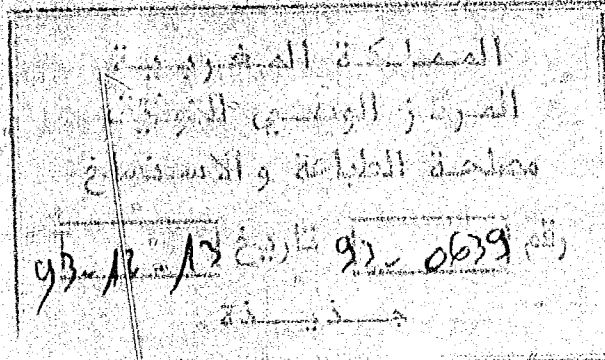 المملكة المغربية
المركز الوطني للتوثيق
مصلحة الطباعة والاستنساخ
رقم 93-0639 تاريخ 93-12-13
جـــذيـــذة